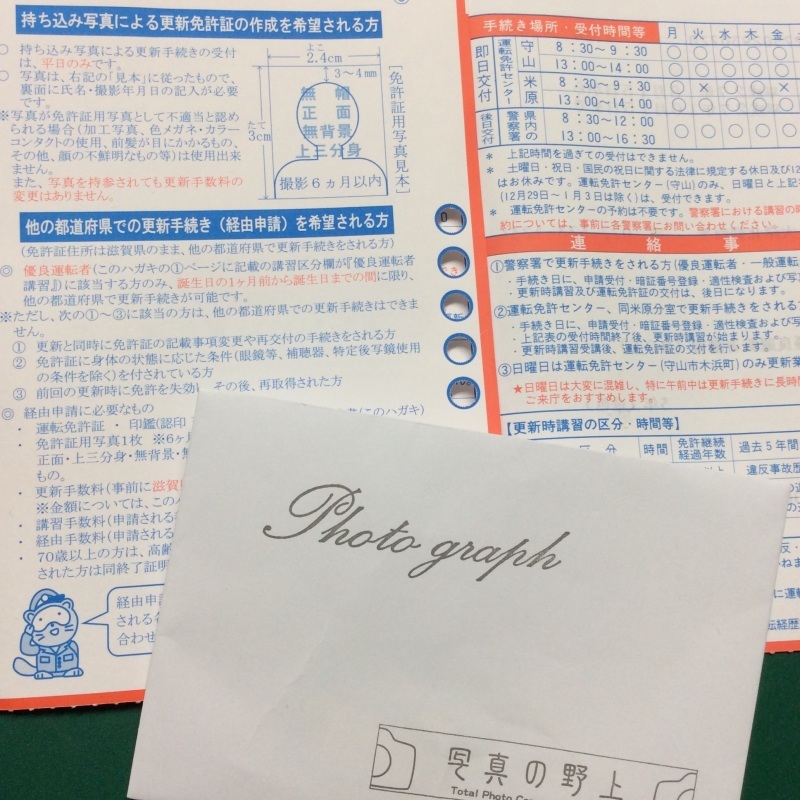 持ち込み写真による更新免許証の作成を希望される方
○ 持ち込み写真による更新手続きの受付
は、平日のみです。
○ 写真は、右記の「見本」に従ったもので、
裏面に氏名・撮影年月日の記入が必要
です。
※写真が免許証用写真として不適当と認め
られる場合(加工写真、色メガネ・カラー
コンタクトの使用、前髪が目にかかるもの、
その他、顔の不鮮明なもの等)は使用出来
ません。
また、写真を持参されても更新手数料の
変更はありません。
よこ
2.4cm
3〜4mm
たて
3cm
無 帽
正 面
無背景
上三分身
撮影6ヵ月以内
[免許証用写真見本]
他の都道府県での更新手続き(経由申請)を希望される方
(免許証住所は滋賀県のまま、他の都道府県で更新手続きをされる方)
◎ 優良運転者(このハガキの①ページに記載の講習区分欄が『優良運転者
講習』に該当する方のみ、誕生日の1ヶ月前から誕生日までの間に限り、
他の都道府県で更新手続きが可能です。
※ただし、次の①〜③に該当の方は、他の都道府県での更新手続きはできま
せん。
① 更新と同時に免許証の記載事項変更や再交付の手続きをされる方
② 免許証に身体の状態に応じた条件(眼鏡等、補聴器、特定後写鏡使用
の条件を除く)を付されている方
③ 前回の更新時に免許を失効し、その後、再取得された方
◎ 経由申請に必要なもの
・ 運転免許証 ・ 印鑑(認印
(このハガキ)
・ 免許証用写真1枚 ※6ヶ月
正面・上三分身・無背景・無
もの。
・ 更新手数料(事前に滋賀
※金額については、このハ
・ 講習手数料(申請される
・ 経由手数料(申請される
・ 70歳以上の方は、高齢
された方は同終了証明
経由申
される
合わせ
手続き場所・受付時間等 月 火 水 木 金
即日交付 運転免許センター 守山 8:30〜9:30 ○ ○ ○ ○ ○
13:00〜14:00 ○ ○ ○ ○ ○
米原 8:30〜9:30 ○ × ○ ○ ×
13:00〜14:00 ○ ○ ○ ○ ○
後日交付 県内の警察署 8:30〜12:00
13:00〜16:30 ○ ○ ○ ○ ○
* 上記時間を過ぎての受付はできません。
* 土曜日・祝日・国民の祝日に関する法律に規定する休日及び12
はお休みです。運転免許センター(守山)のみ、日曜日と上記
(12月29日〜1月3日は除く)は、受付できます。
* 運転免許センターの予約は不要です。警察署における講習の
約については、事前に各警察署にお問い合わせください。
連 絡 事
①警察署で更新手続きをされる方(優良運転者・一般運転
・手続き日に、申請受付・暗証番号登録・適性検査および写
・更新時講習及び運転免許証の交付は、後日になります。
②運転免許センター、同米原分室で更新手続きをされる方
・手続き日に、申請受付・暗証番号登録・適性検査および写
上記表の受付時間終了後、更新時講習が始まります。
・更新時講習受講後、運転免許証の交付を行います。
③日曜日は運転免許センター(守山市木浜町)のみ更新業
★日曜日は大変に混雑し、特に午前中は更新手続きに長時
ご来庁をおすすめします。
【更新時講習の区分・時間等】
区 分 時間 免許継続経過年数 過去5年間
以上 違反事故歴
Photo graph
写真の野上
Total Photo